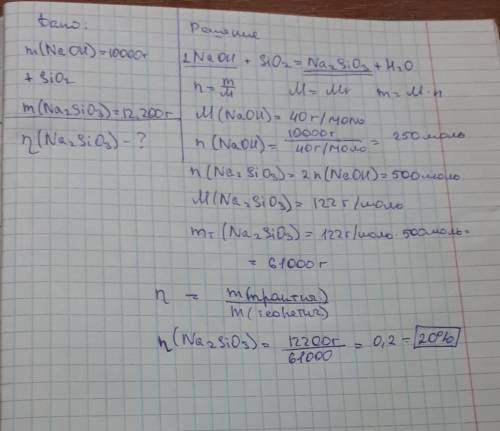 Дано:
m(NaOH)=10000г
+ SiO2
m(Na2SiO3)=12,200г
η(Na2SiO3)-?
Решение
2NaOH + SiO2 = Na2SiO3 + H2O
n = m/M M = Mr m = M·n
M(NaOH) = 40г/моль
n(NaOH) = 10000г/40г/моль = 250моль
n(Na2SiO3) = 2n(NaOH) = 500моль
M(Na2SiO3) = 122г/моль
m=(Na2SiO3) = 122г/моль · 500моль=
= 61000г
η = m(практич.)/m(теоретич.)
η(Na2SiO3) = 12200г/61000 = 0,2 = 20%